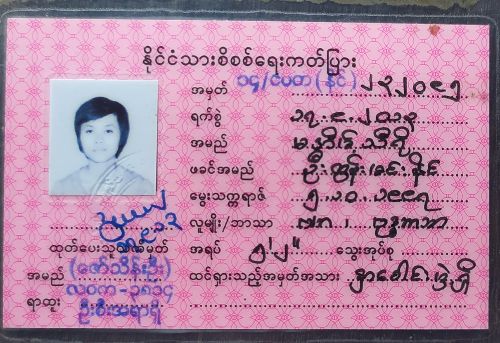 နိုင်ငံသားစိစစ်ရေးကတ်ပြား
အမှတ် ၁၄/ငပတ (နိုင်) ၂၃၂၀၉၅
ရက်စွဲ ၁၇.၉.၂၀၁၃
အမည် မအိမ့်သီရိ
ဖခင်အမည် ဦးထွန်းဝင်းနိုင်
မွေးသက္ကရာဇ် ၅.၁၀.၁၉၉၇
လူမျိုး/ဘာသာ ဗမာ၊ ဗုဒ္ဓဘာသာ
အရပ် ၅'၂" သွေးအုပ်စု
ထင်ရှားသည့်အမှတ်အသား
ထုတ်ပေးသူ၏လက်မှတ်
အမည် (ဇော်သိန်းဦး)
လဝက - ၁၈၁၄
ရာထူး ဦးစီးအရာရှိ